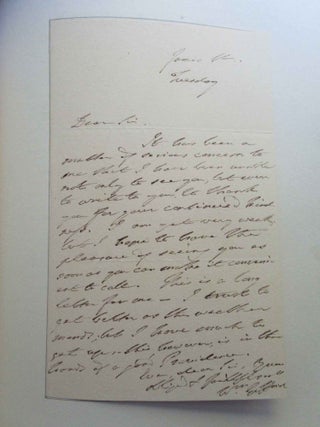 James St.
Tuesday
Dear Sir,
It has been a
matter of serious concern to
me that I have been unable
not only to see you, but even
to write to you, to thank
you for your continued kind
ness. I am yet very weak,
but I hope to have the
pleasure of seeing you as
soon as you can make it conveni
ent to call. This is a long
letter for me — I trust to
get better as the weather
mends, but I have much to
get up — this however, is in the
hands of a good Providence.
I am, dear Sir, your
obliged &
Wm Gifford